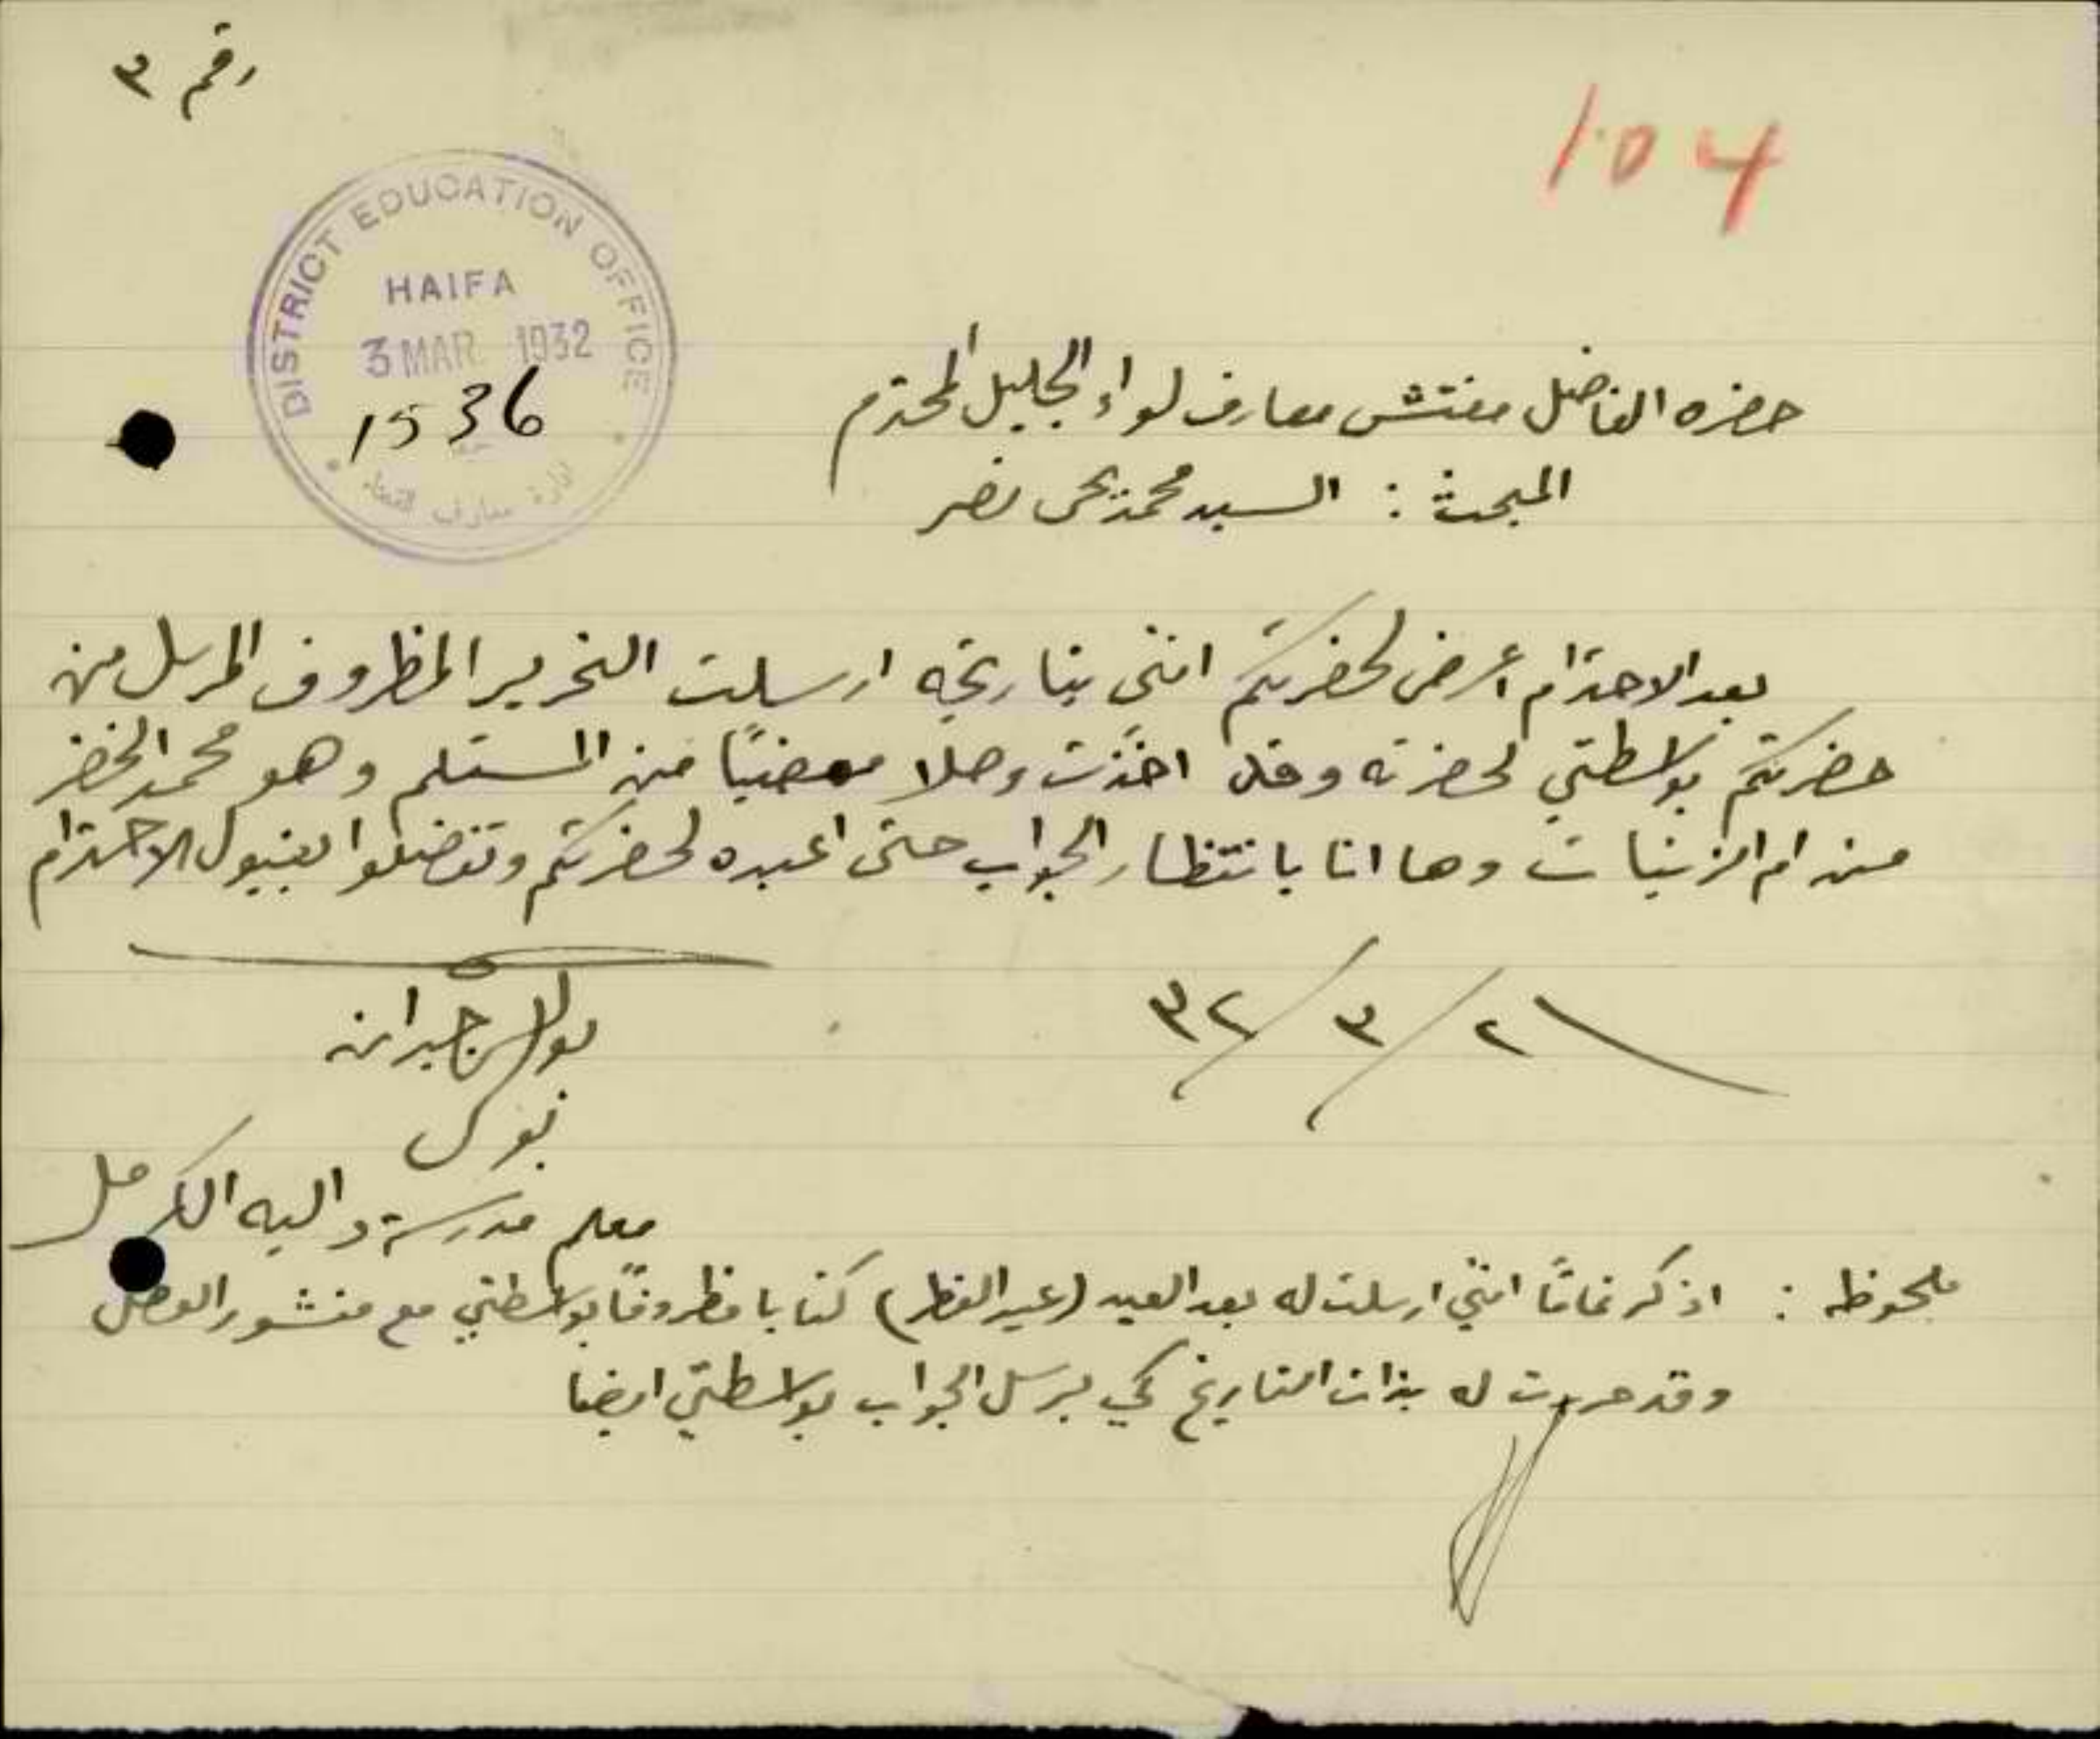 رقم ٣
104
DISTRICT EDUCATION OFFICE
HAIFA
3 MAR 1932
1536
ادارة معارف
حضره الفاضل مفتش معارف لواء الجليل المحترم
المبحث : السيد محمد يحي نصر
بعد الاحترام اعرض لحضرتكم انني بتاريخه ارسلت التحرير المظروف المرسل من
حضرتكم بواسطتي لحضرته وقد اخذت وصلا ممضيًا من المستلم وهو محمد الخضر
من ام الزينات وها انا بانتظار الجواب حتى اعيده لحضرتكم وتفضلوا بقبول الاحترام
٢ / ٣ / ٣٢
بولس جبران
بولس
معلم مدرسة دالية الكرمل
ملحوظه : اذكر تمامًا انني ارسلت له بعد العيد (عيد الفطر) كتابا مظروفًا بواسطتي مع منشور
وقد حررت له بذات التاريخ كي يرسل الجواب بواسطتي ايضا